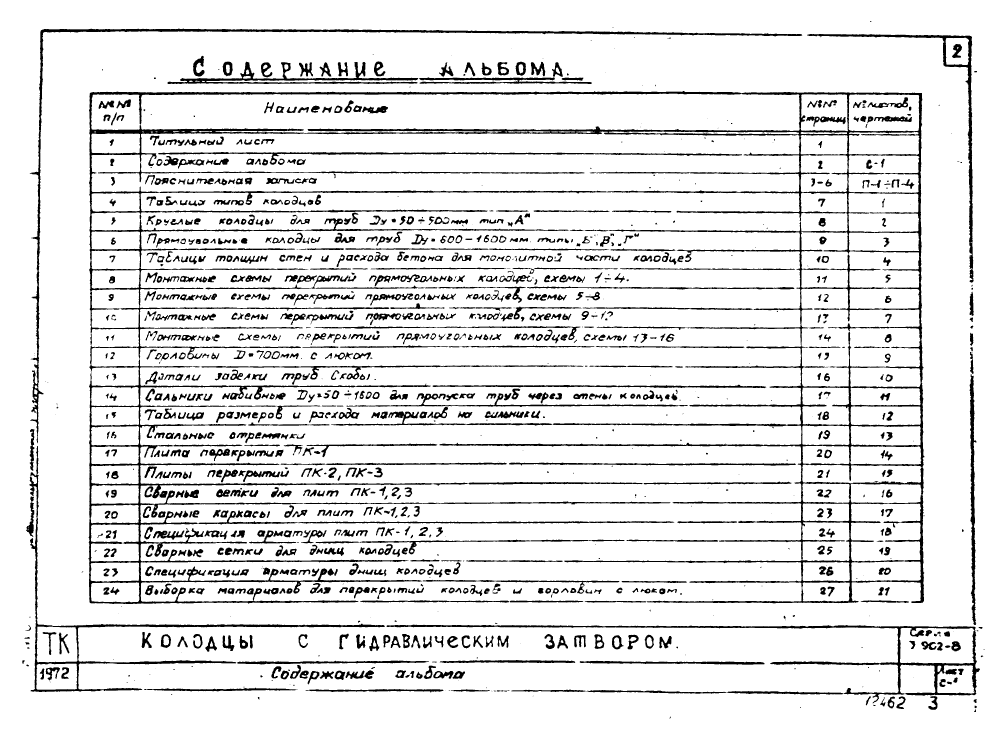 2
СОДЕРЖАНИЕ АЛЬБОМА.
№№ п/п Наименование №№ страниц № листов, чертежей
1 Титульный лист 1
2 Содержание альбома 2 С-1
3 Пояснительная записка 3-6 П-1÷П-4
4 Таблица типов колодцев 7 1
5 Круглые колодцы для труб Dу=50÷500мм тип „А" 8 2
6 Прямоугольные колодцы для труб Dу=600-1600мм. типы „Б", „В", „Г" 9 3
7 Таблицы толщин стен и расхода бетона для монолитной части колодцев 10 4
8 Монтажные схемы перекрытий прямоугольных колодцев, схемы 1÷4. 11 5
9 Монтажные схемы перекрытий прямоугольных колодцев, схемы 5-8 12 6
10 Монтажные схемы перекрытий прямоугольных колодцев, схемы 9-12 13 7
11 Монтажные схемы перекрытий прямоугольных колодцев, схемы 13-16 14 8
12 Горловины D=700мм. с люком. 15 9
13 Детали заделки труб Скобы. 16 10
14 Сальники набивные Dу=50÷1600 для пропуска труб через стены колодцев 17 11
15 Таблица размеров и расхода материалов на сальники. 18 12
16 Стальные стремянки 19 13
17 Плита перекрытия ПК-1 20 14
18 Плиты перекрытий ПК-2, ПК-3 21 15
19 Сварные сетки для плит ПК-1,2,3 22 16
20 Сварные каркасы для плит ПК-1,2,3 23 17
21 Спецификация арматуры плит ПК-1,2,3 24 18
22 Сварные сетки для днищ колодцев 25 19
23 Спецификация арматуры днищ колодцев 26 20
24 Выборка материалов для перекрытий колодцев и горловин с люком. 27 21
ТК КОЛОДЦЫ С ГИДРАВЛИЧЕСКИМ ЗАТВОРОМ. Серия 3 902-8
1972 Содержание альбома Лист С-1
12462 3